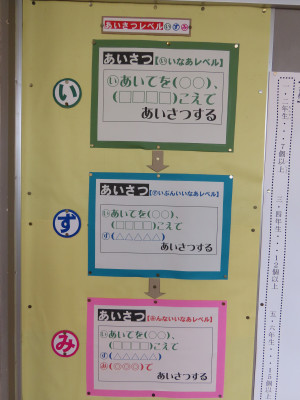 あいさつレベル いずみ
い
あいさつ【いいなあレベル】
いあいてを(○○)、
(□□□□)こえで
あいさつする
ず
あいさつ【ずいぶんいいなあレベル】
いあいてを(○○)、
(□□□□)こえで
ず(△△△△△)
あいさつする
み
あいさつ【みんないいなあレベル】
いあいてを(○○)、
(□□□□)こえで
ず(△△△△△)
み(◎◎◎)で
あいさつする
一・二年生・・・７個以上
三・四年生・・・１２個以上
五・六年生・・・１５個以上